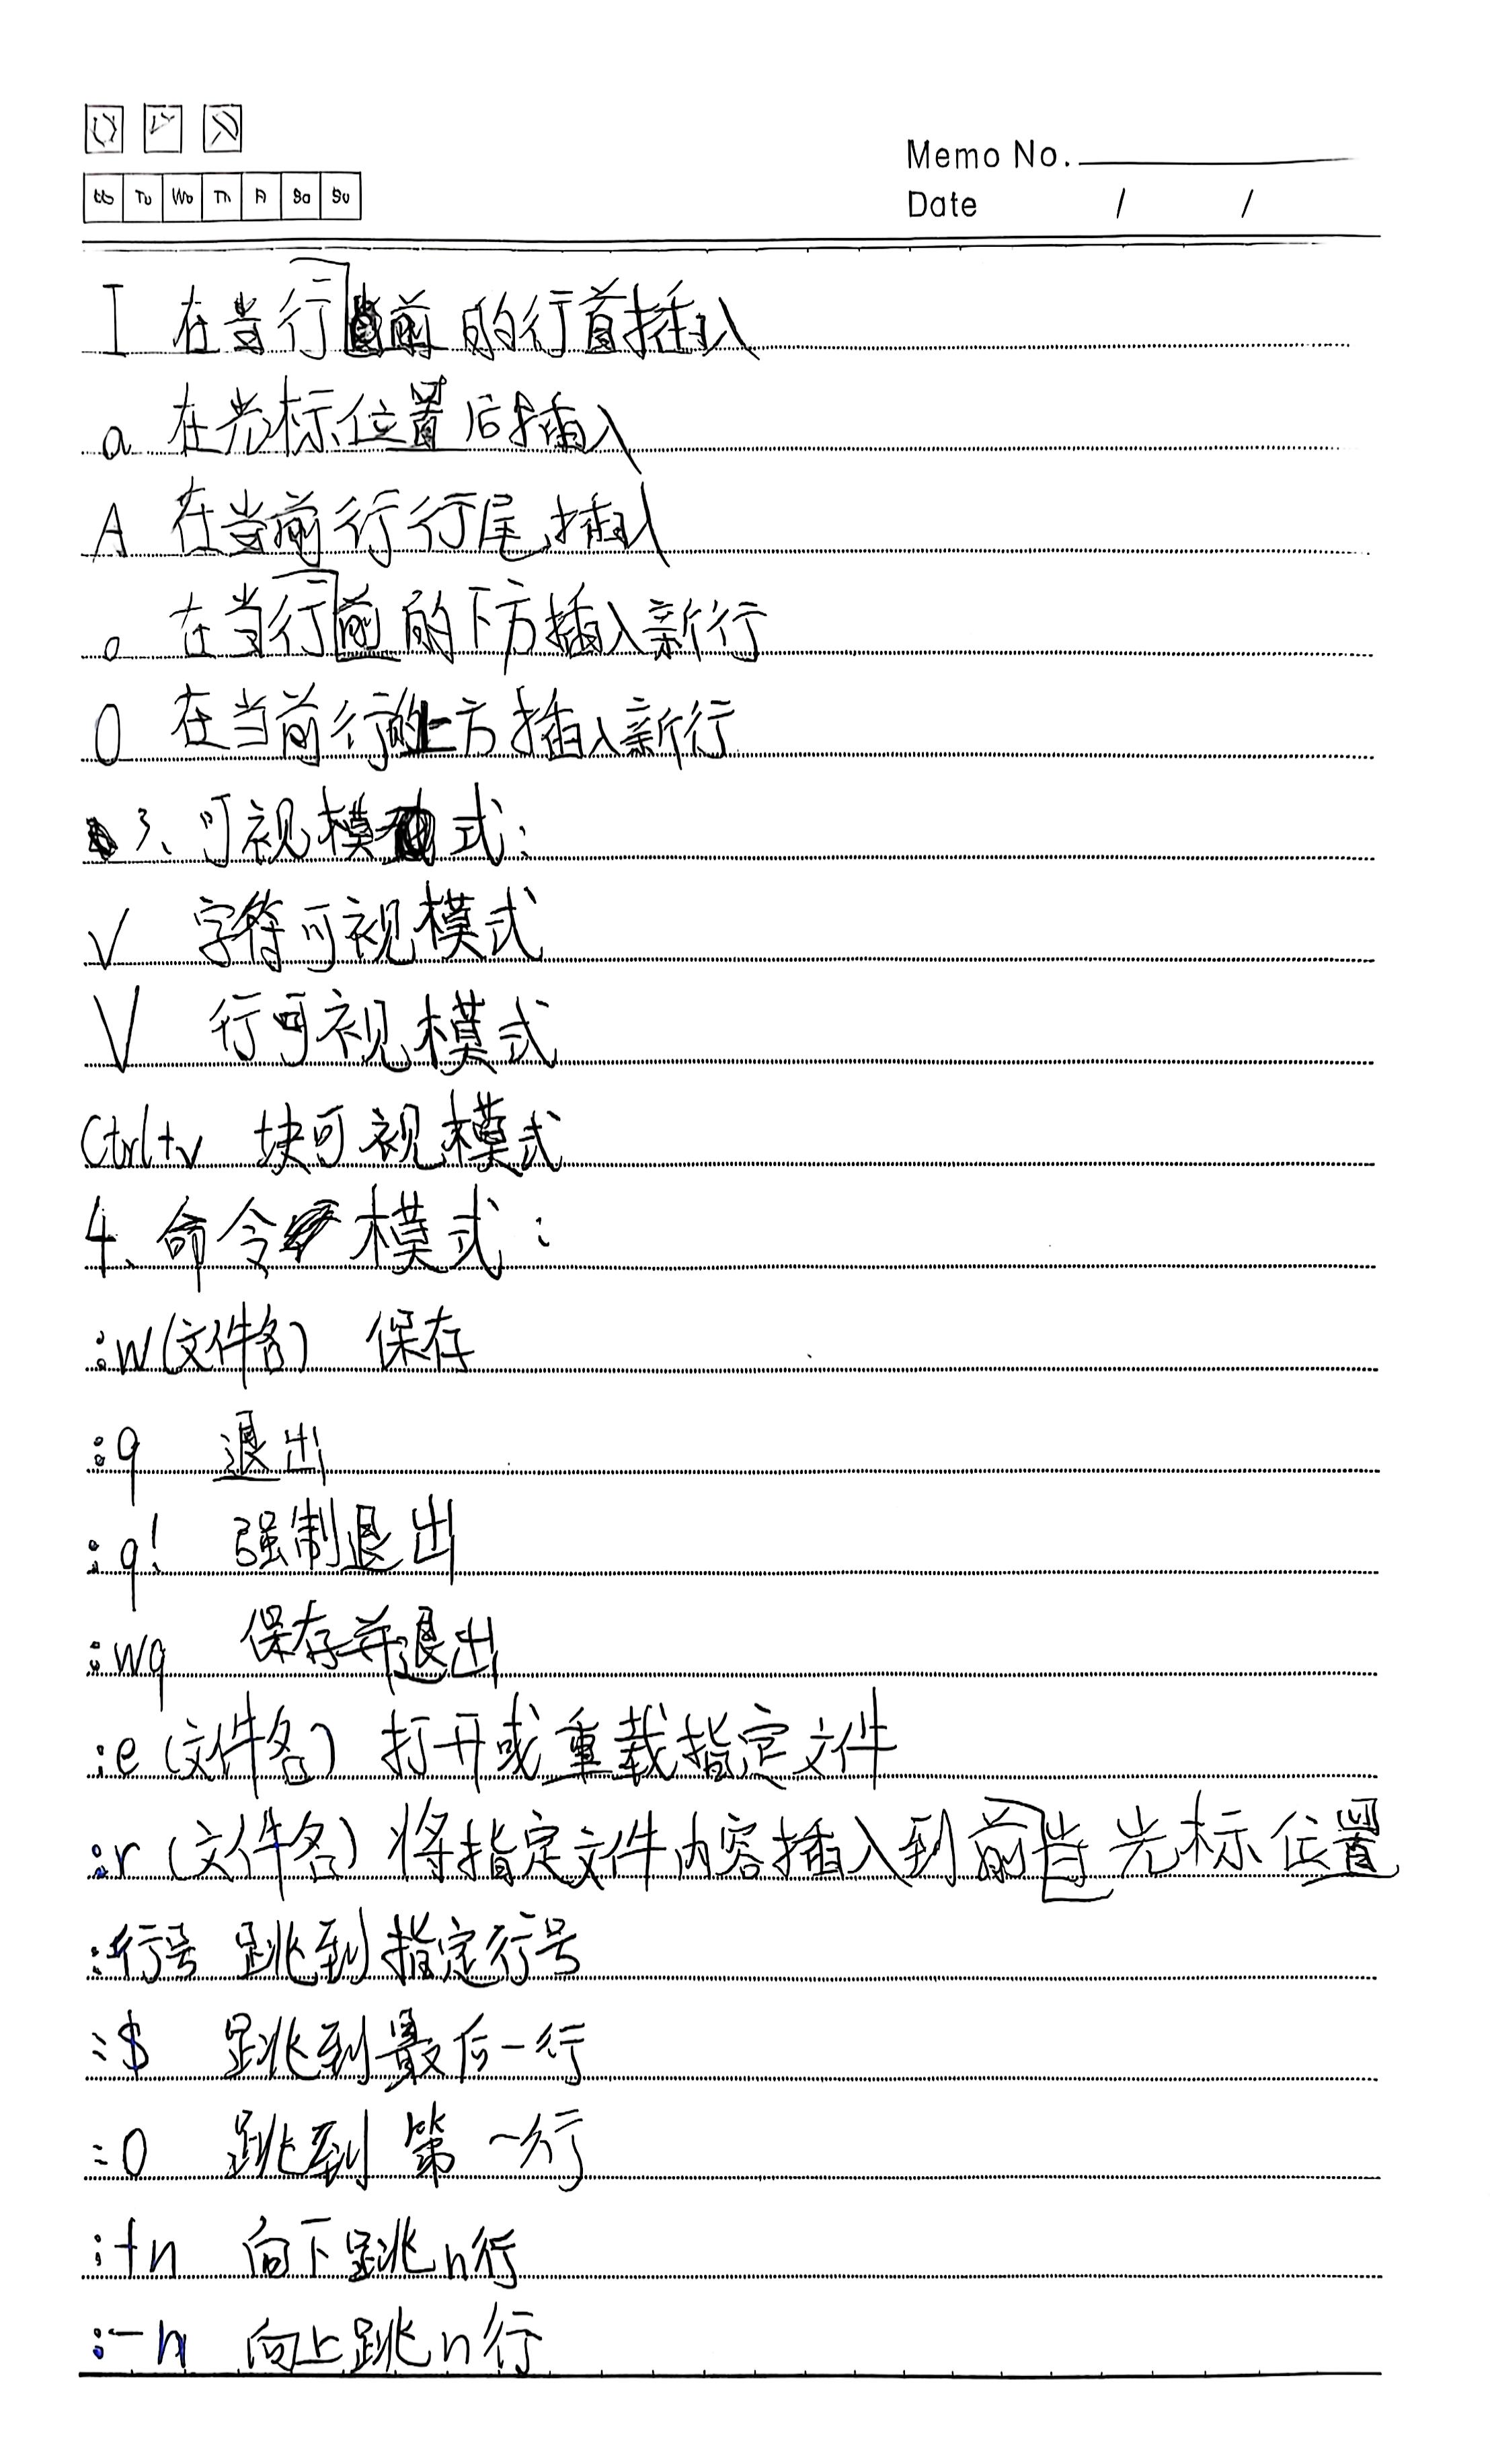 Memo No.
Mo Tu We Th Fr Sa Su
Date / /
I 在当行前的行首插入
a 在光标位置后插入
A 在当前行行尾插入
o 在当行前的下方插入新行
O 在当前行的上方插入新行
3、可视模式:
v 字符可视模式
V 行可视模式
Ctrl+v 块可视模式
4、命令模式:
:w(文件名) 保存
:q 退出
:q! 强制退出
:wq 保存并退出
:e(文件名) 打开或重载指定文件
:r(文件名) 将指定文件内容插入到前当光标位置
:行号 跳到指定行号
:$ 跳到最后一行
:0 跳到第一行
:+n 向下跳n行
:-n 向上跳n行